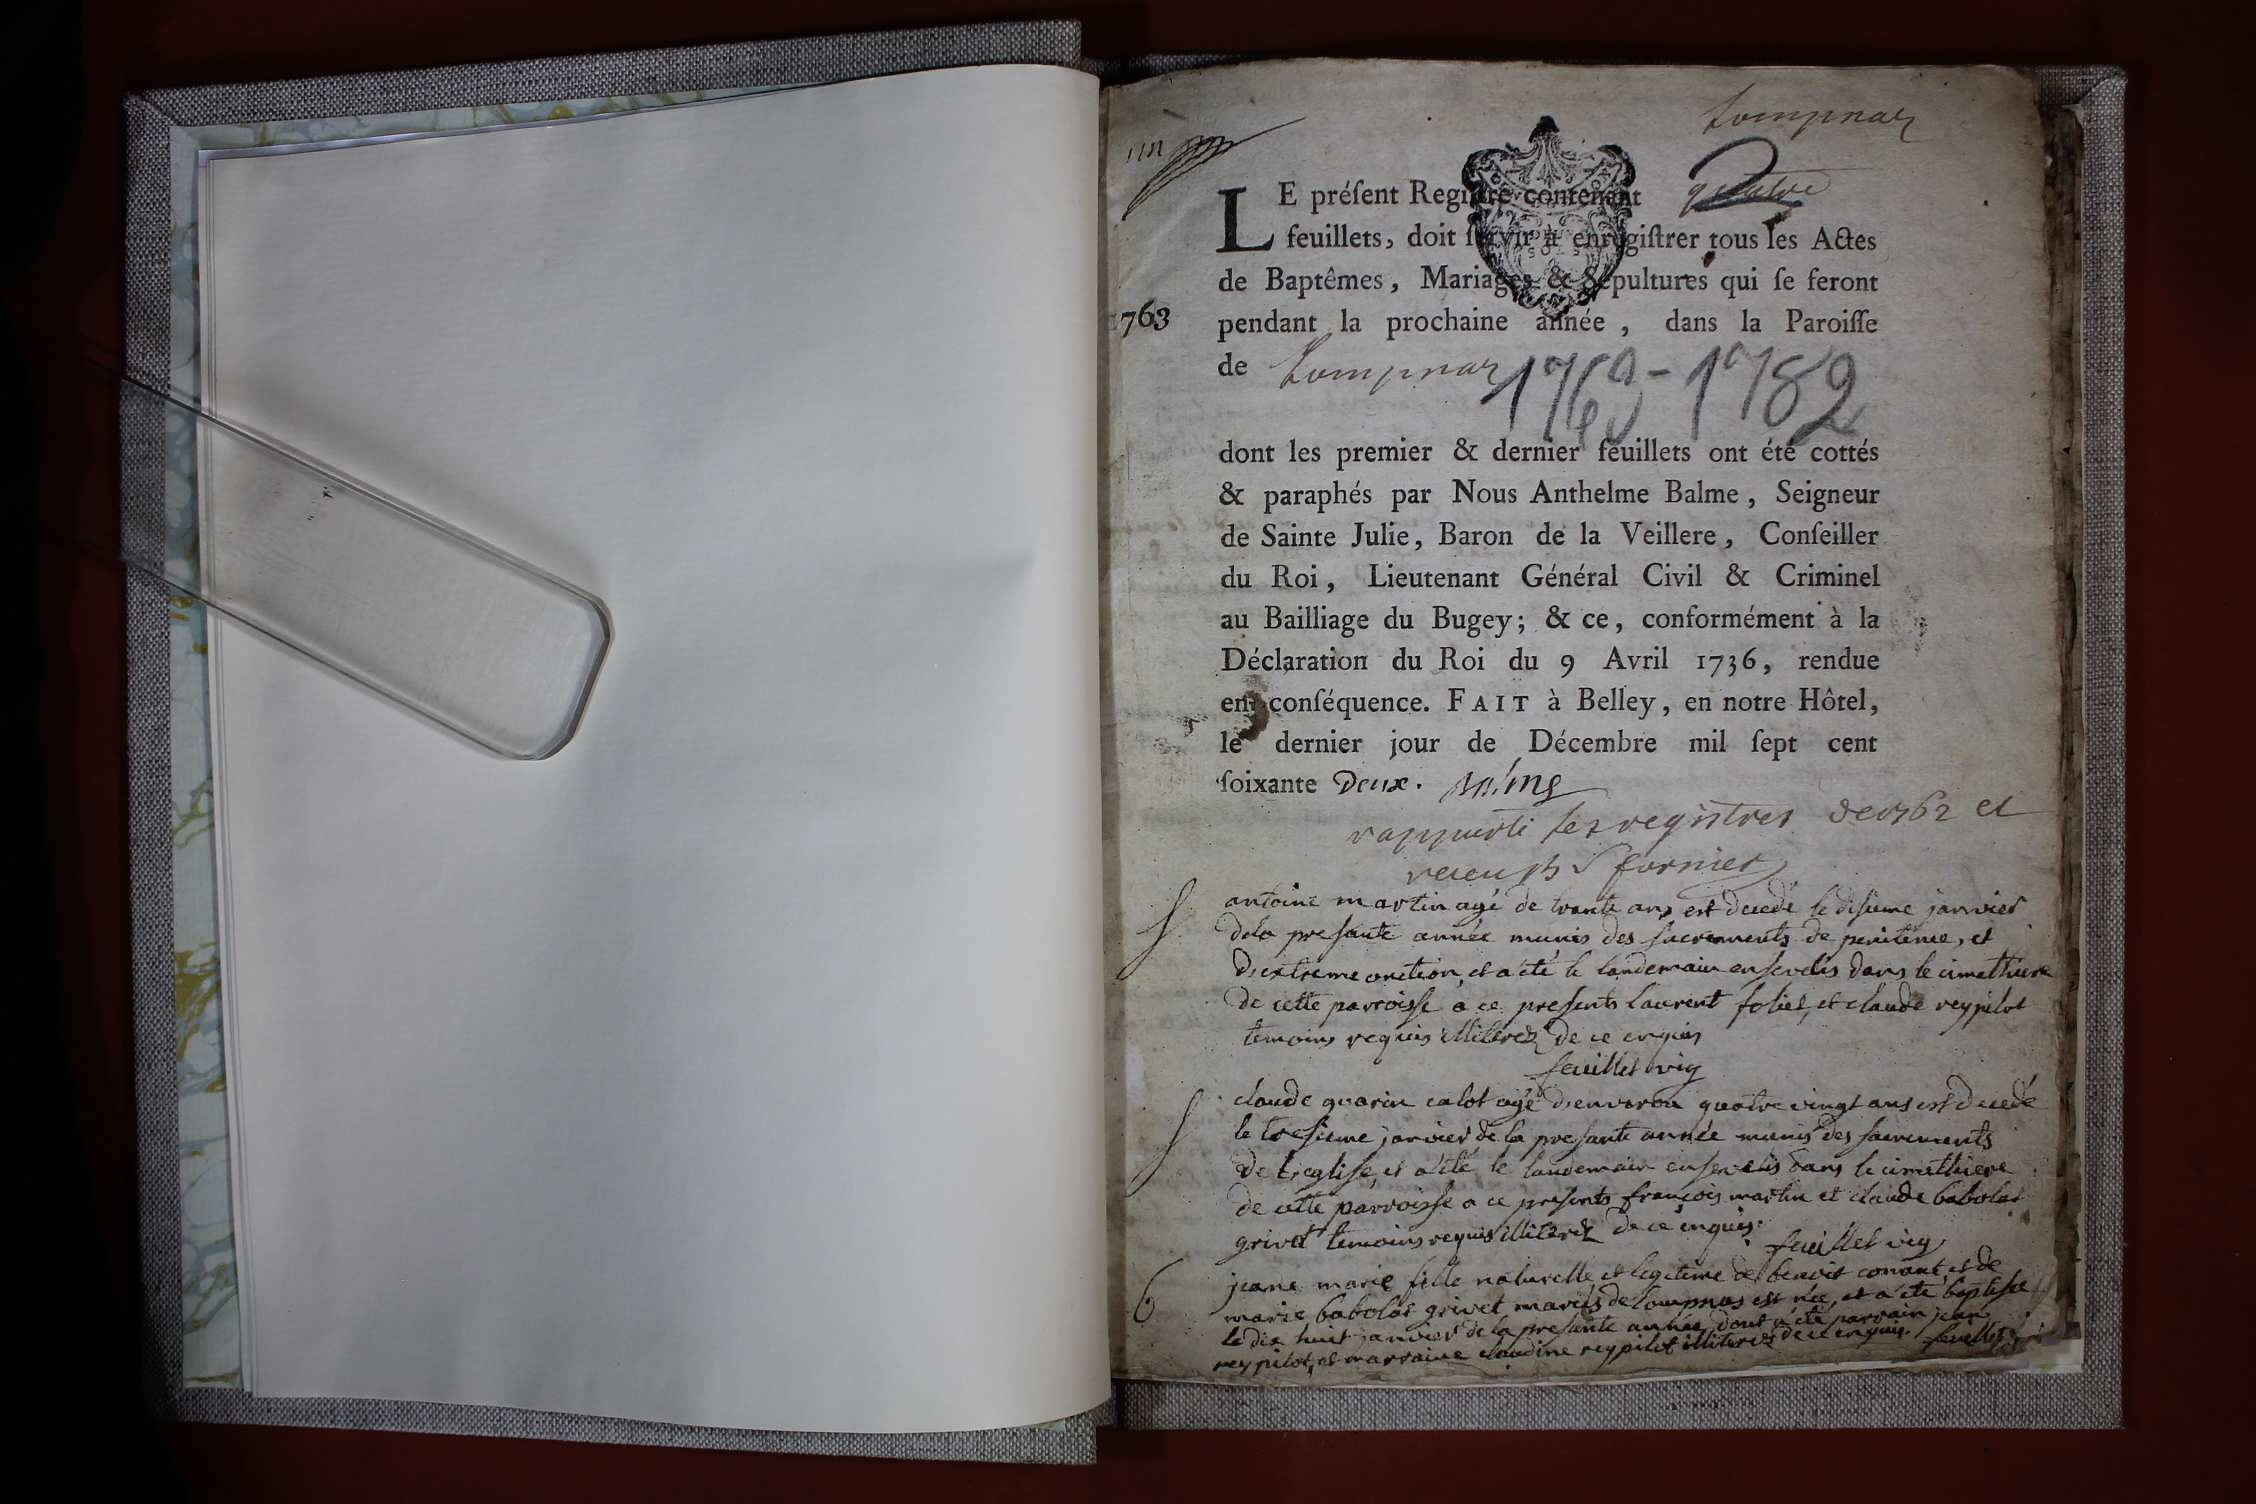 Lompnas
2
LE préſent Regiſtre contenant quatre
feuillets, doit ſervir à enregiſtrer tous les Actes
de Baptêmes, Mariages & Sépultures qui ſe feront
1763
pendant la prochaine année, dans la Paroiſſe
de Lompnas
1763-1782
dont les premier & dernier feuillets ont été cottés
& paraphés par Nous Anthelme Balme, Seigneur
de Sainte Julie, Baron de la Veillere, Conſeiller
du Roi, Lieutenant Général Civil & Criminel
au Bailliage du Bugey; & ce, conformément à la
Déclaration du Roi du 9 Avril 1736, rendue
en conſéquence. FAIT à Belley, en notre Hôtel,
le dernier jour de Décembre mil ſept cent
ſoixante Deux. Balme
rapporté les registres de 1762 et
fornier
S
antoine martin agé de trante ans est decedé le disieme janvier
dela presante année munis des sacrements de penitence, et
d'extreme onction, et a été le landemain ensevelis dans le cimethiere
de cette parroisse a ce presents laurent foliet, et claude reypilot
temoins requis illiterez de ce enquis
feuillet vic
S
claude guarin calot agé d'environ quatre vingt ans est decedé
le tresieme janvier de la presante année munis des sacrements
de l'eglise, et a été le landemain ensevelis dans le cimethiere
de cette parroisse a ce presents françois martin et claude babolat
grivet temoins requis illiterez de ce enquis.
feuillet vic
B
jeane marie fille naturelle et legitime de benoit conant, et de
marie babolat grivet mariés de lompnas est née, et a été baptisée
le dix huit janvier de la presante année dont a été parrain jean
reypilot, et marraine claudine reypilot illiterez de ce enquis. feuillet